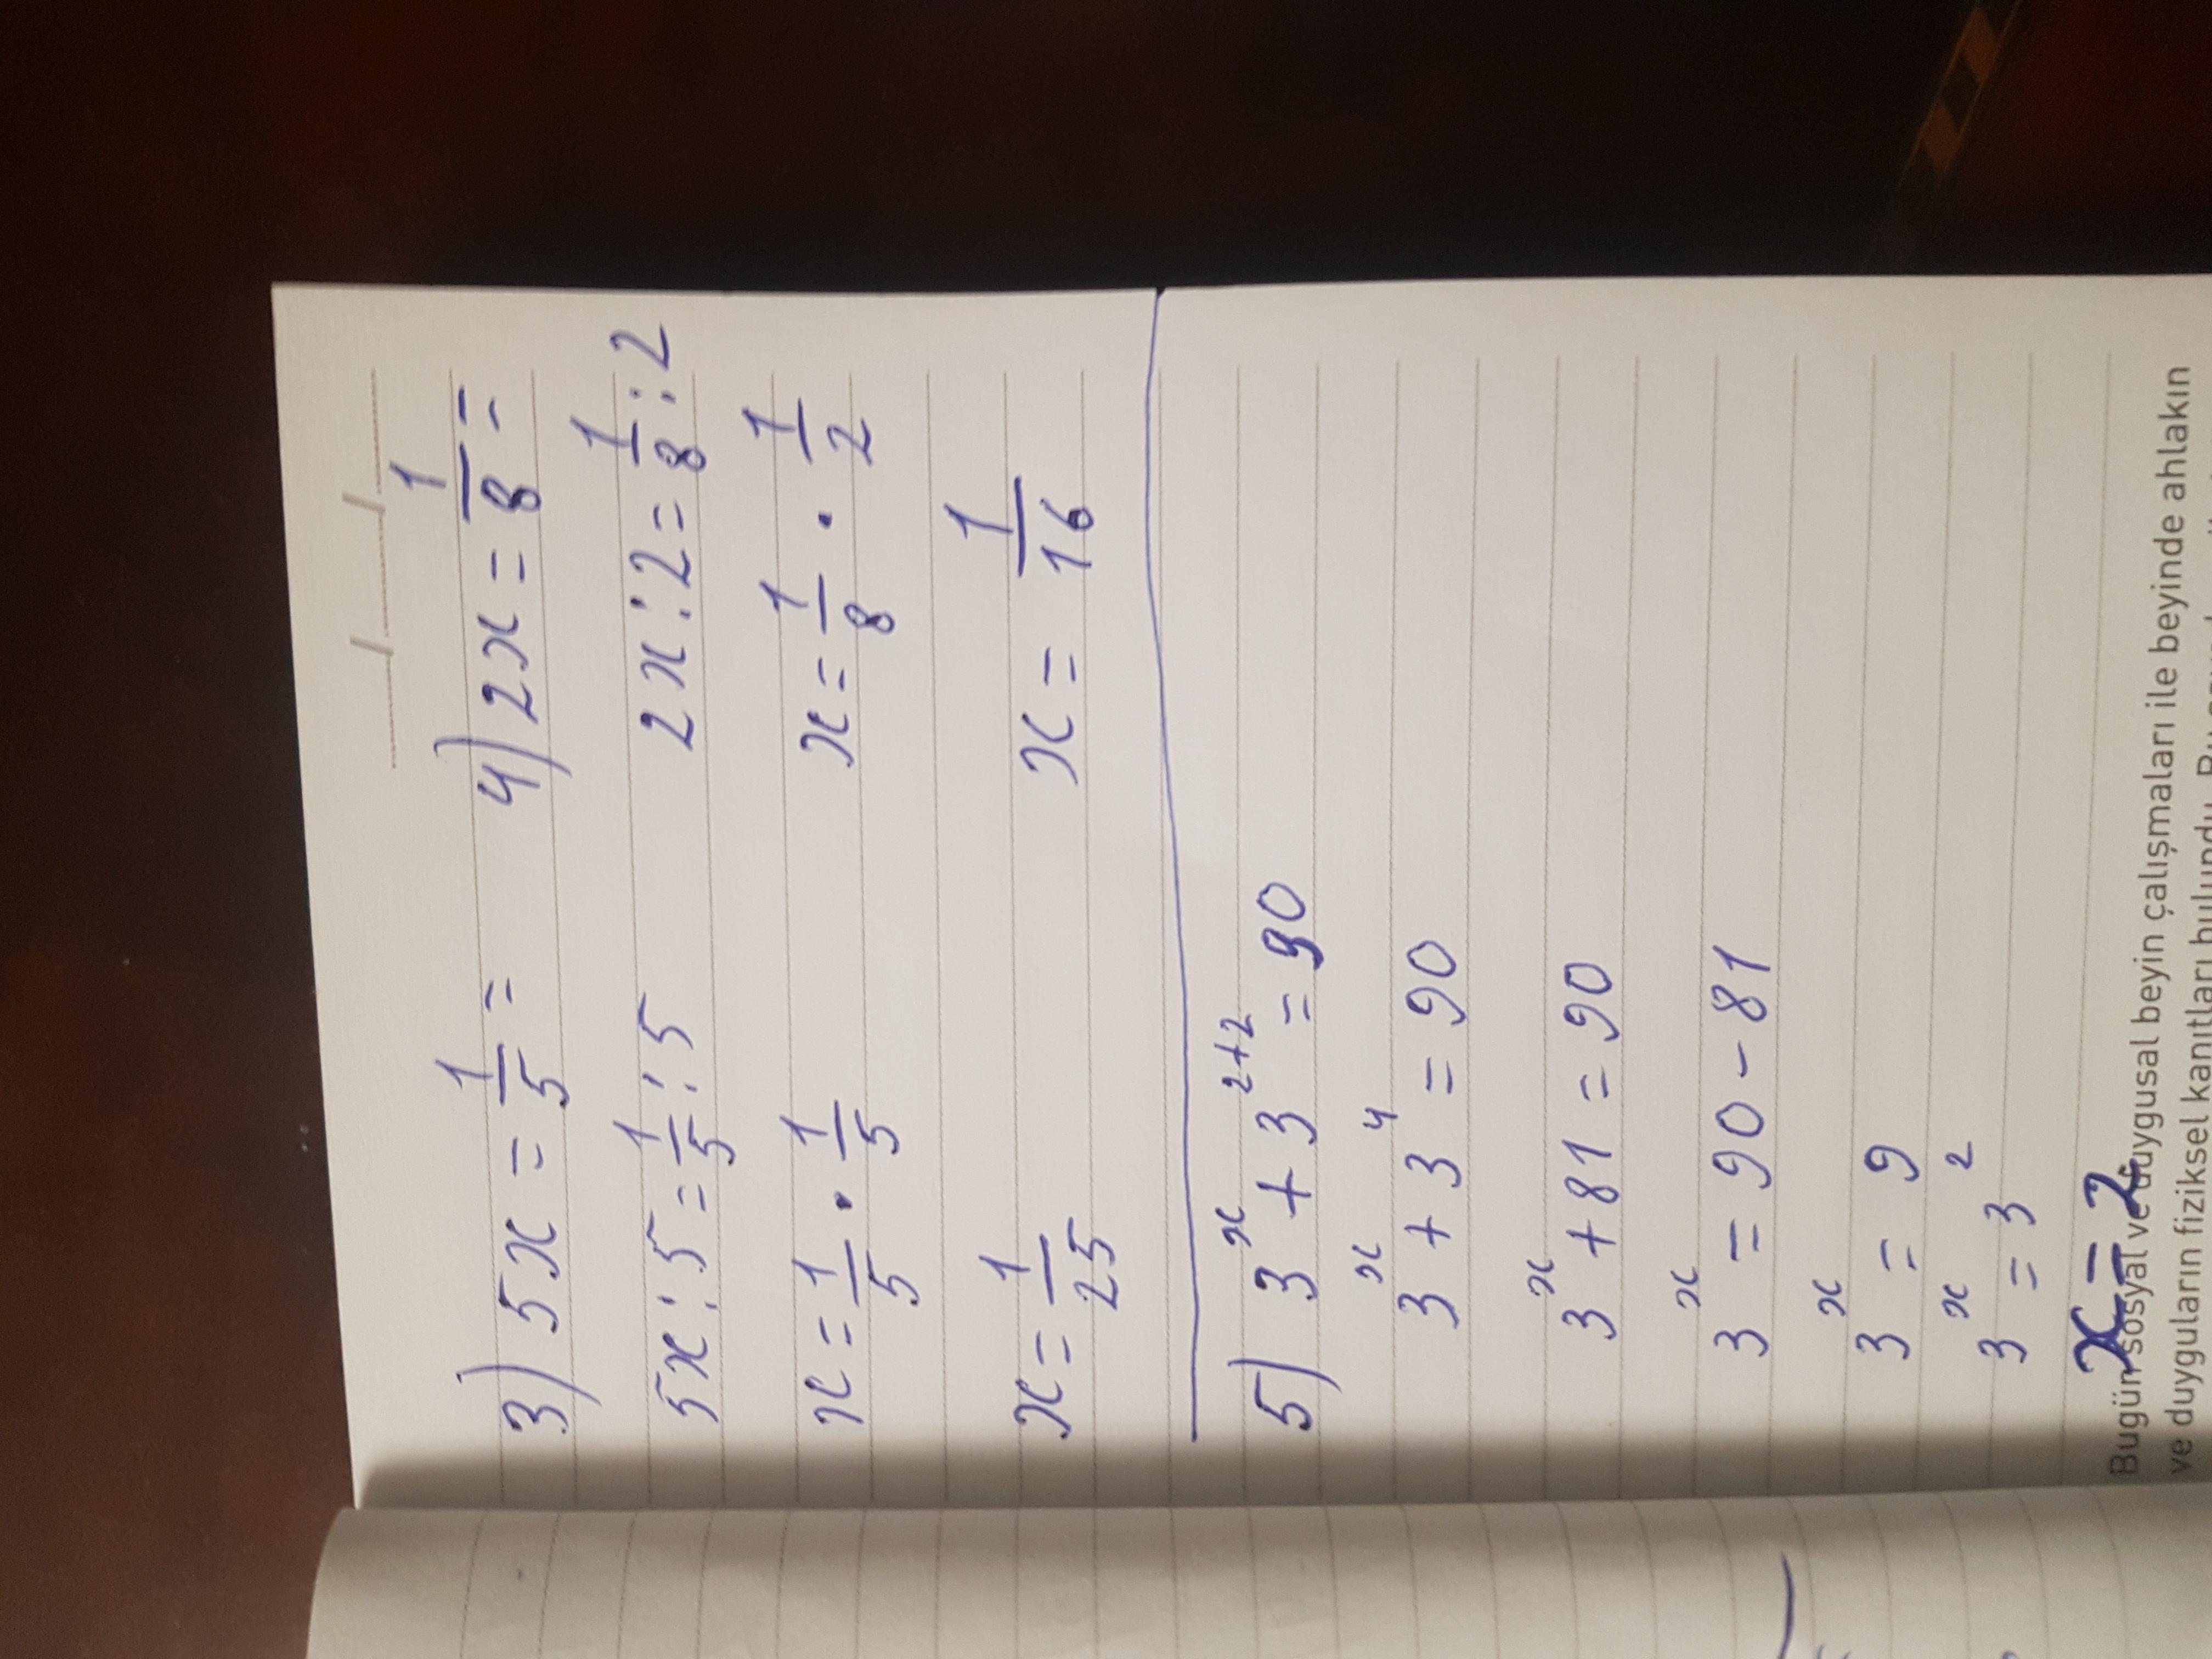 3) 5x = 1/5 =
5x : 5 = 1/5 : 5
x = 1/5 · 1/5
x = 1/25
4) 2x = 1/8 =
2x : 2 = 1/8 : 2
x = 1/8 · 1/2
x = 1/16
5) 3^x + 3^2+2 = 90
3^x + 3^4 = 90
3^x + 81 = 90
3^x = 90 - 81
3^x = 9
3^x = 3^2
x = 2
Bugün sosyal ve duygusal beyin çalışmaları ile beyinde ahlakın
ve duyguların fiziksel kanıtları bulundu.